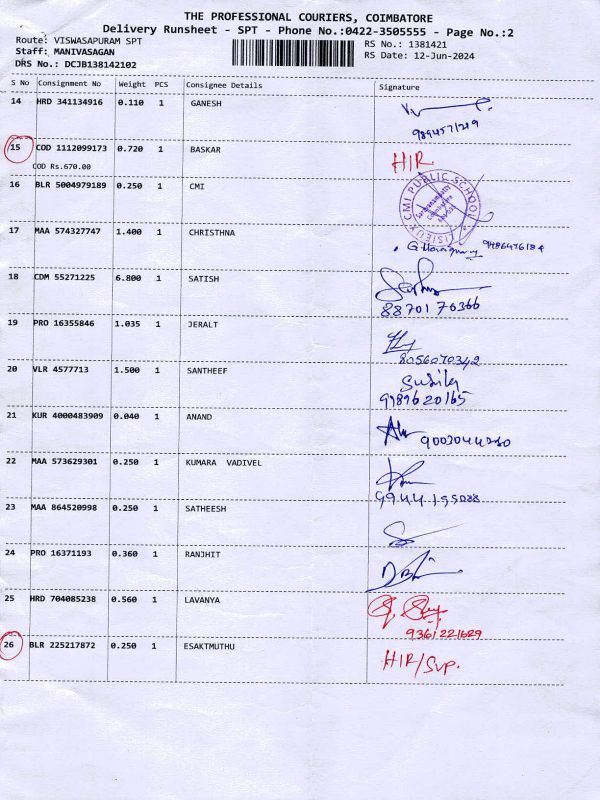 THE PROFESSIONAL COURIERS, COIMBATORE
Delivery Runsheet - SPT - Phone No.:0422-3505555 - Page No.:2
Route: VISWASAPURAM SPT RS No.: 1381421
Staff: MANIVASAGAN RS Date: 12-Jun-2024
DRS No.: DCJB138142102
S No Consignment No Weight PCS Consignee Details Signature
14 HRD 341134916 0.110 1 GANESH
9894571219
15 COD 1112099173 0.720 1 BASKAR HIR
COD Rs.670.00
16 BLR 5004979189 0.250 1 CMI
LISIEUX CMI PUBLIC SCHOOL
17 MAA 574327747 1.400 1 CHRISTHNA
18 CDM 55271225 6.800 1 SATISH
8870170366
19 PRO 16355846 1.035 1 JERALT
8056070342
20 VLR 4577713 1.500 1 SANTHEEF Susila
9789620165
21 KUR 4000483909 0.040 1 ANAND
9003044280
22 MAA 573629301 0.250 1 KUMARA VADIVEL
9944195088
23 MAA 864520998 0.250 1 SATHEESH
24 PRO 16371193 0.360 1 RANJHIT
25 HRD 704085238 0.560 1 LAVANYA
9361221629
26 BLR 225217872 0.250 1 ESAKTMUTHU HIR/SVP.